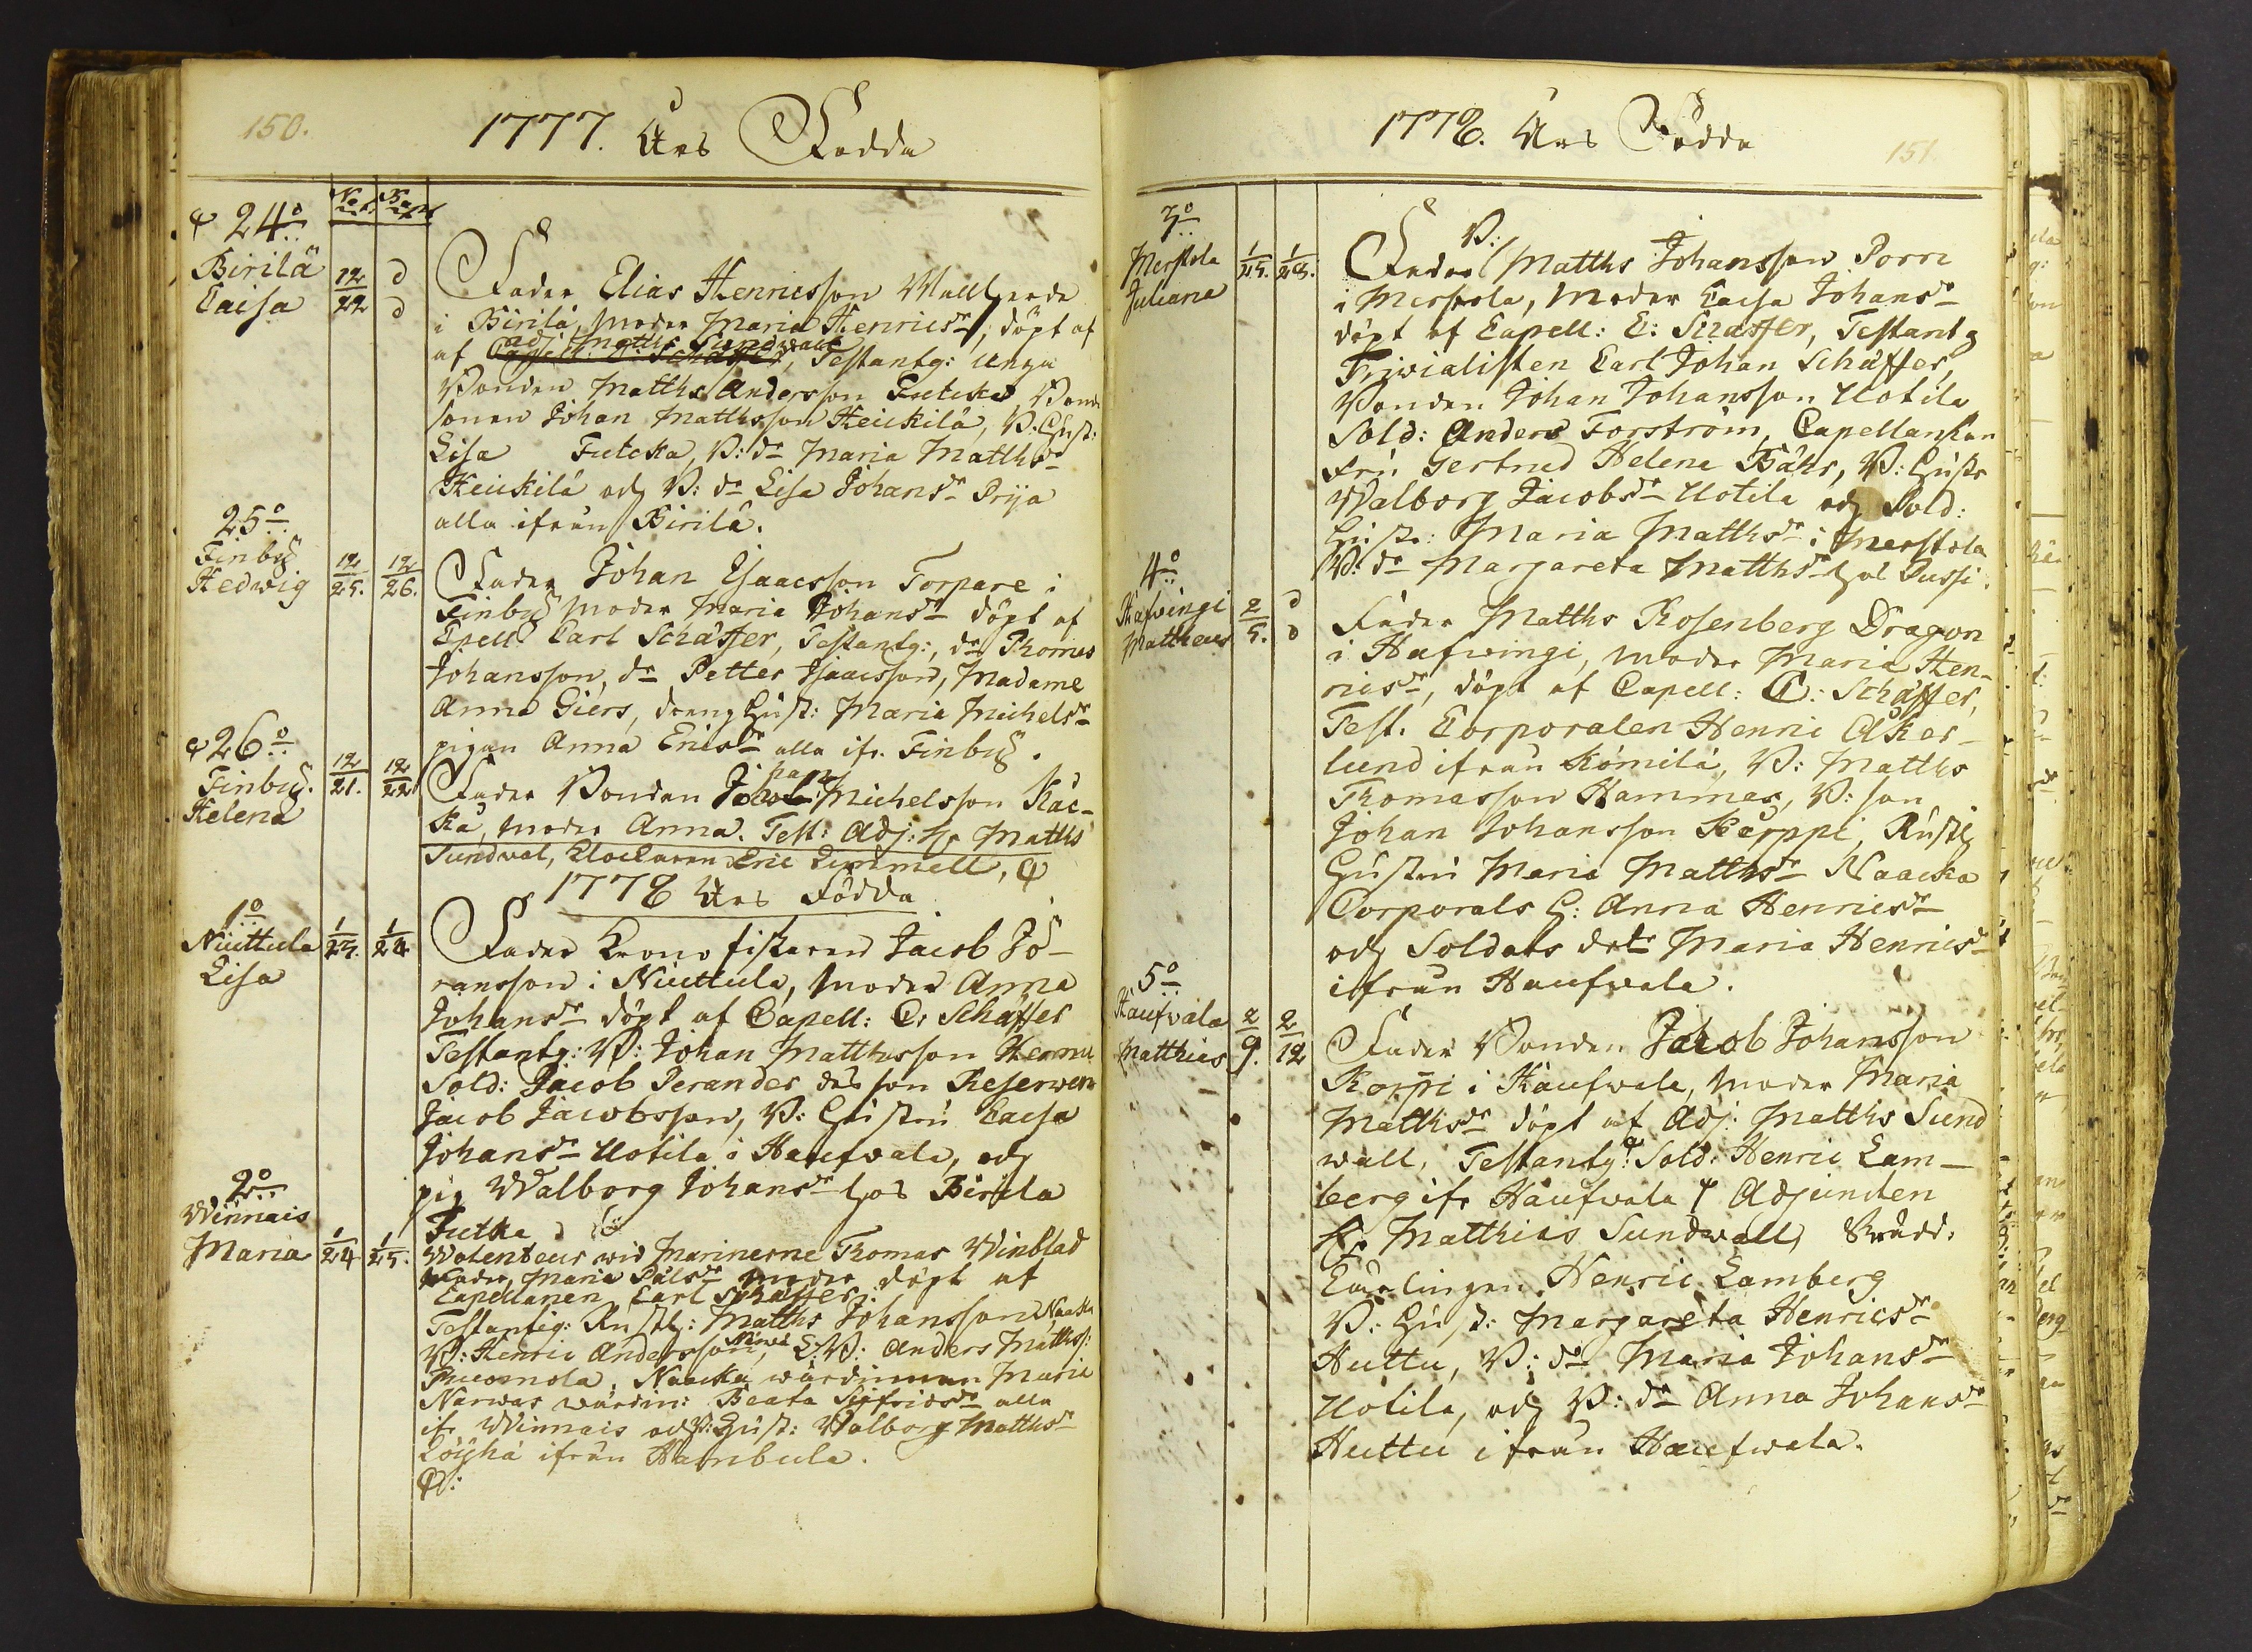 150.
1777. Års Födda
Nat. Bapt.
24o
Birilä
Caisa
12/22
d
d
Fader Elias Henricsson
i Birilä, moder Maria Henricsdr, döpt af
adj: Matths Sundwall
af Capell: C: Schäffer, Testantg: unga
Bonden Matths Andersson Futcka, Bonde
sonen Johan Matthsson Heickilä, B. Hust:
Lisa Futcka, B: do Maria Matthsdr
Heickilä och B: do Lisa Johansdr Prija
alla ifrån Birilä.
25o
Finby
Hedwig
12/25.
12/26.
Fader Johan Isaacsson Torpare i
Finby moder Maria Johansdr döpt af
Cpell: Carl Schäffer, Testantg:, dr Thomas
Johansson, dr Petter Isaacsson, Madame
Anna Giers, dräng Hust: Maria Michelsdr
pigan Anna Ericsdr alla ifr. Finby.
26o
Finby.
Helena
12/21.
12/22
Fader Bonden Johan Michelsson Käc-
kä, moder Anna. Test: Adj: Hr Matths
Sundval, Klockaren Eric Lummell,
1778 Års Födda
1o
Niuttula
Lisa
1/23.
1/24
Fader Krono fiskaren Jacob Jö-
ransson i Niuttula, moder Anna
Johansdr döpt af Capell: C: Schäffer
Testantg: B: Johan Matthsson Hemmi
Sold: Jacob Perander dess son Reserwen
Jacob Jacobsson, B: Hustru Caisa
Johansdr Uotila i Haufwala, och
pig Walborg Johansdr hos Birila
Futka
2o
Winnais
Maria
1/24
1/25.
Wolenteur wid Marinerne Thomas Winblad
Fader, Maria Pålsdr moder döpt af
Capellanen Carl Schäffer:
Testantg: Rusth: Matths Johansson Naacka
B: Henric Andersson, B: Anders Matthss:
Puconola, Naacka wärdinnan Maria
Narwas wärdin: Beata Sigfridsdr alla
ifr Winnais och B: Hust: Walborg Matthsdr
Löyhä ifrån Hambula.
1778. Års Födda
151.
3o
Merstola
Juliana
1/25.
1/28.
B:
Fader Matths Johansson Porri
i Merstola, Moder Caisa Johansdr
döpt af Capell: C: Schäffer, Testantg
Trivialisten Carl Johan Schäffer,
Bonden Johan Johansson Uotila
Sold: Anders Forström, Capellanskan
Fru Gertrud Helena Bähr, B: Hustr
Walborg Jacobsdr Uotila och Sold:
Hustr: Maria Matthsdr i Merstola
B: dr Margareta Matthsdr hos Pussi.
4o
Hafwingi
Mattheus
2/5.
d
d
Fader Matths Rosenberg Dragon
i Hafwingi, moder Maria Hen-
ricsdr, döpt af Capell: C: Schäffer,
Test. Corporalen Henric Åker-
lund ifrån Kömilä, B: Matths
Thomasson Hammar, B: son
Johan Johansson Kärppi, Rusth
Hustru Maria Matthsdr Naacka
Corporals H: Anna Henricsdr
och Soldats dotr Maria Henricsdr
ifrån Haufwala.
5o
Haufvala
Matthias
2/9.
2/12
Fader Bonden Jacob Johansson
Korpi i Haufwala, moder Maria
Matthsdr döpt af Adj: Matths Sund
wall, Testantg: Sold: Henric Lam-
berg ifr Haufwala Adjuncten
Hr Matthias Sundwall,
Henric Lamberg
B: Hust: Margareta Henricsdr
Huttu, B: do Maria Johansdr
Uotila, och B: do Anna Johansdr
Huttu ifrån Haufwala.